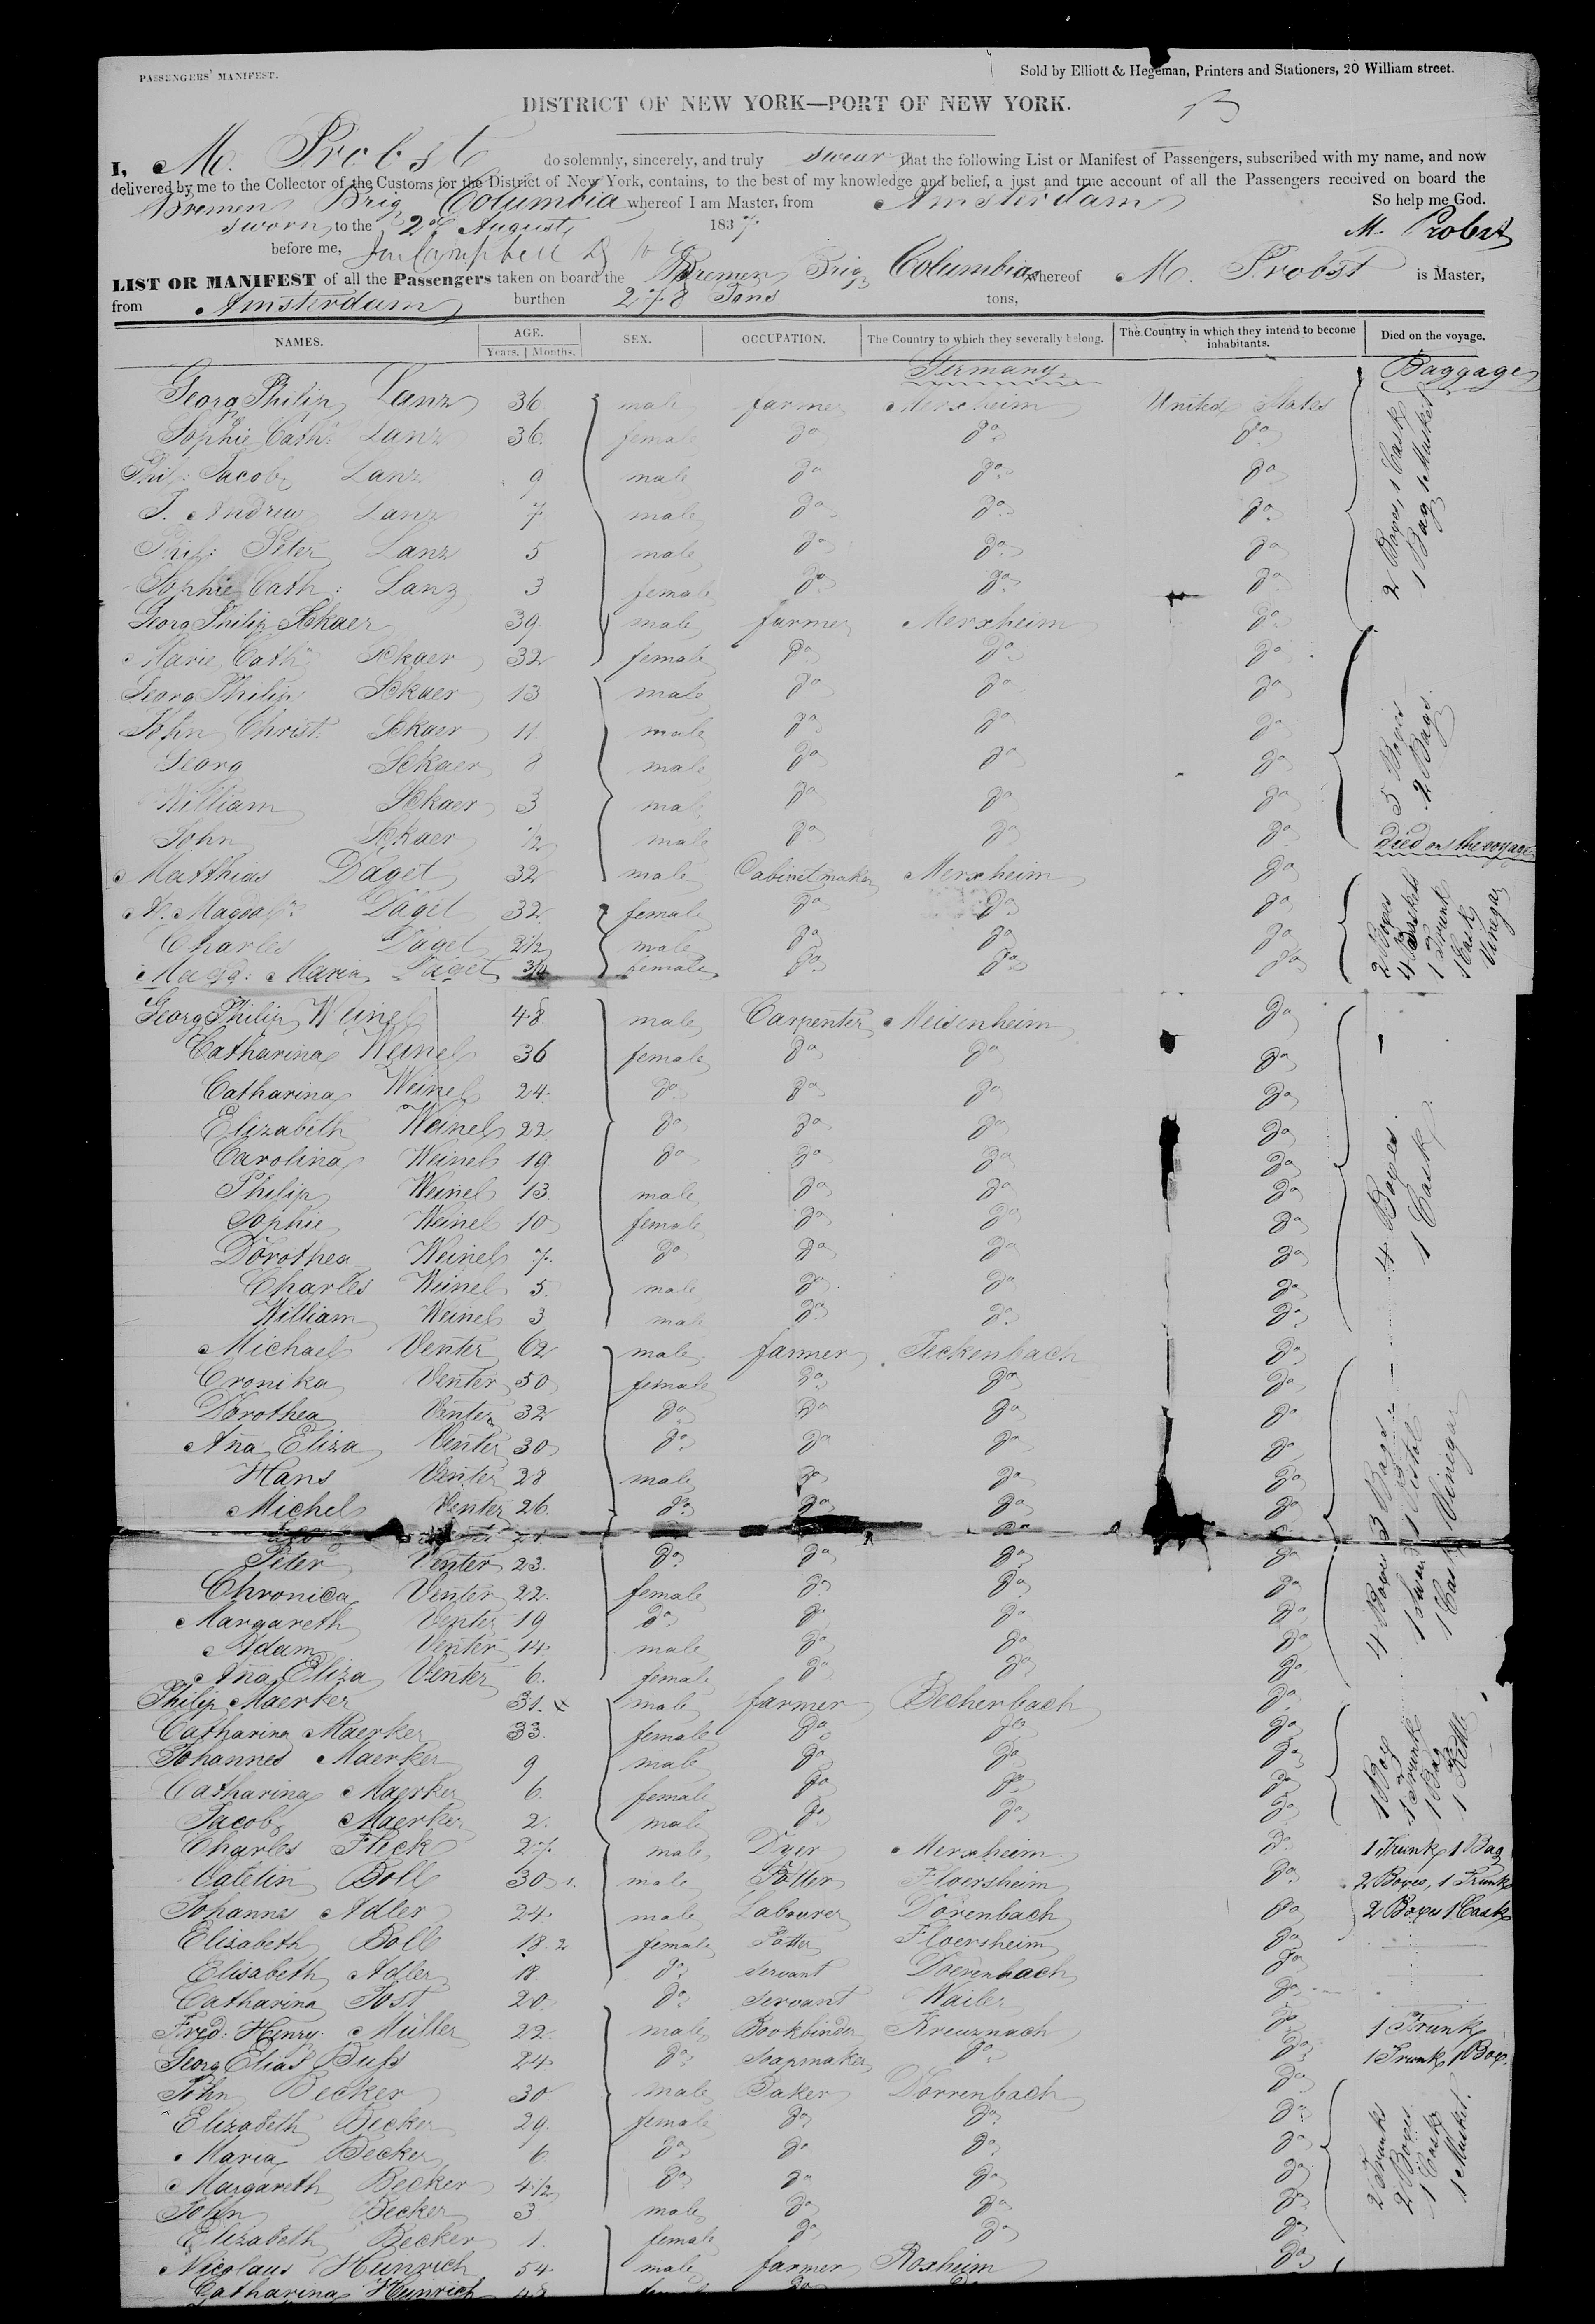 PASSENGERS' MANIFEST.
Sold by Elliott & Hegeman, Printers and Stationers, 20 William street.
DISTRICT OF NEW YORK—PORT OF NEW YORK.
I, M. Probst do solemnly, sincerely, and truly swear that the following List or Manifest of Passengers, subscribed with my name, and now
delivered by me to the Collector of the Customs for the District of New York, contains, to the best of my knowledge and belief, a just and true account of all the Passengers received on board the
Bremen Brig Columbia whereof I am Master, from Amsterdam So help me God.
sworn to the 2d August 1837 M. Probst
before me, Campbell
LIST OR MANIFEST of all the Passengers taken on board the Bremen Brig Columbia whereof M. Probst is Master,
from Amsterdam burthen 278 Tons tons,
NAMES. AGE. Years. Months. SEX. OCCUPATION. The Country to which they severally belong. The Country in which they intend to become inhabitants. Died on the voyage.
Germany Baggage
Georg Philip Lanz 36 male farmer Merxheim United States
Sophie Cath: Lanz 36 female do do do
Phil: Jacob Lanz 9 male do do do
J. Andrew Lanz 7 male do do do
Phil: Peter Lanz 5 male do do do
Sophie Cath: Lanz 3 female do do do
2 Boxes, 1 Cask
1 Bag 1 Musket
Georg Philip Skaer 39 male farmer Merxheim do
Marie Cath Skaer 32 female do do do
Georg Philip Skaer 13 male do do do
John Christ. Skaer 11 male do do do
Georg Skaer 8 male do do do
William Skaer 3 male do do do
5 Boxes
2 Bags.
John Skaer 1/2 male do do do died on the voyage
Matthias Daget 32 male Cabinetmaker Merxheim do
A. Magda Daget 32 female do do do
Charles Daget 2 1/2 male do do do
Magd: Maria Daget 3/4 female do do do
2 Boxes
4 Baskets
1 Trunk
1 Cask
Vinegar
Georg Philip Weinel 48 male Carpenter Meisenheim do
Catharina Weinel 36 female do do do
Catharina Weinel 24 do do do do
Elizabeth Weinel 22 do do do do
Carolina Weinel 19 do do do do
Philip Weinel 13 male do do do
Sophie Weinel 10 female do do do
Dorothea Weinel 7 do do do do
Charles Weinel 5 male do do do
William Weinel 3 male do do do
4 Boxes.
1 Cask
Michael Venter 62 male farmer Jeckenbach do
Cronika Venter 50 female do do do
Dorothea Venter 32 do do do do
Ana Eliza Venter 30 do do do do
Hans Venter 28 male do do do
Michel Venter 26 do do do do
Peter Venter 23 do do do do
Chronica Venter 22 female do do do
Margareth Venter 19 do do do do
Adam Venter 14 male do do do
Ana Eliza Venter 6 female do do do
4 Boxes 3 Bags.
1 Pistol
1 Cask Vinegar
Philip Maerker 31 male farmer Becherbach do
Catharina Maerker 33 female do do do
Johannes Maerker 9 male do do do
Catharina Maerker 6 female do do do
Jacob Maerker 2 male do do do
1 Box
1 Trunk
1 Bag
1 Kettle
Charles Flick 27 male Dyer Merxheim do 1 Trunk 1 Bag
Valetin Boll 30 male Potter Floersheim do 2 Boxes, 1 Trunk
Johannes Adler 24 male Labourer Dörenbach do 2 Boxes 1 Cask
Elisabeth Boll 18 female Potter Floersheim do
Elisabeth Adler 18 do Servant Doerenbach do
Catharina Jost 20 do Servant Wailer do
Fred: Henry Müller 22 male Bookbinder Kreuznach do 1 Trunk
Georg Elias Duss 24 do Soapmaker do do 1 Trunk 1 Box.
John Becker 30 male Baker Dörrenbach do
Elizabeth Becker 29 female do do do
Maria Becker 6 do do do do
Margareth Becker 4 1/2 do do do do
John Becker 3 male do do do
Elizabeth Becker 1 female do do do
2 Trunks
2 Boxes
1 Cask
1 Musket.
Nicolaus Hunrich 54 male farmer Roxheim do
Catharina Hunrich 48